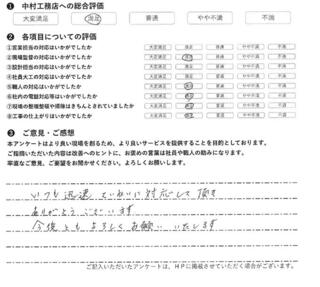 ❶ 中村工務店への総合評価
大変満足 満足 普通 やや不満 不満
❷ 各項目についての評価
①営業担当の対応はいかがでしたか 大変満足 満足 普通 やや不満 不満
②現場監督の対応はいかがでしたか 大変満足 満足 普通 やや不満 不満
③設計担当の対応はいかがでしたか 大変満足 満足 普通 やや不満 不満
④社員大工の対応はいかがでしたか 大変満足 満足 普通 やや不満 不満
⑤職人の対応はいかがでしたか 大変満足 満足 普通 やや不満 不満
⑥社内の電話対応等はいかがでしたか 大変満足 満足 普通 やや不満 不満
⑦現場の整理整頓や掃除はきちんとされていましたか 大変満足 満足 普通 やや不満 不満
⑧工事の仕上がりはいかがでしたか 大変満足 満足 普通 やや不満 不満
❸ ご意見・ご感想
本アンケートはより良い現場を創るため、より良いサービスを提供することを目的としております。
ご指摘いただいた内容は改善へのヒントに、お褒めの言葉は社員や職人の励みになります。
率直なご意見、ご要望をお聞かせください。よろしくお願いします。
いつも迅速ていねいに対応して頂き
ありがとうございます
今後ともよろしくお願いいたします
ご記入いただいたアンケートは、HPに掲載させていただく場合がございます。